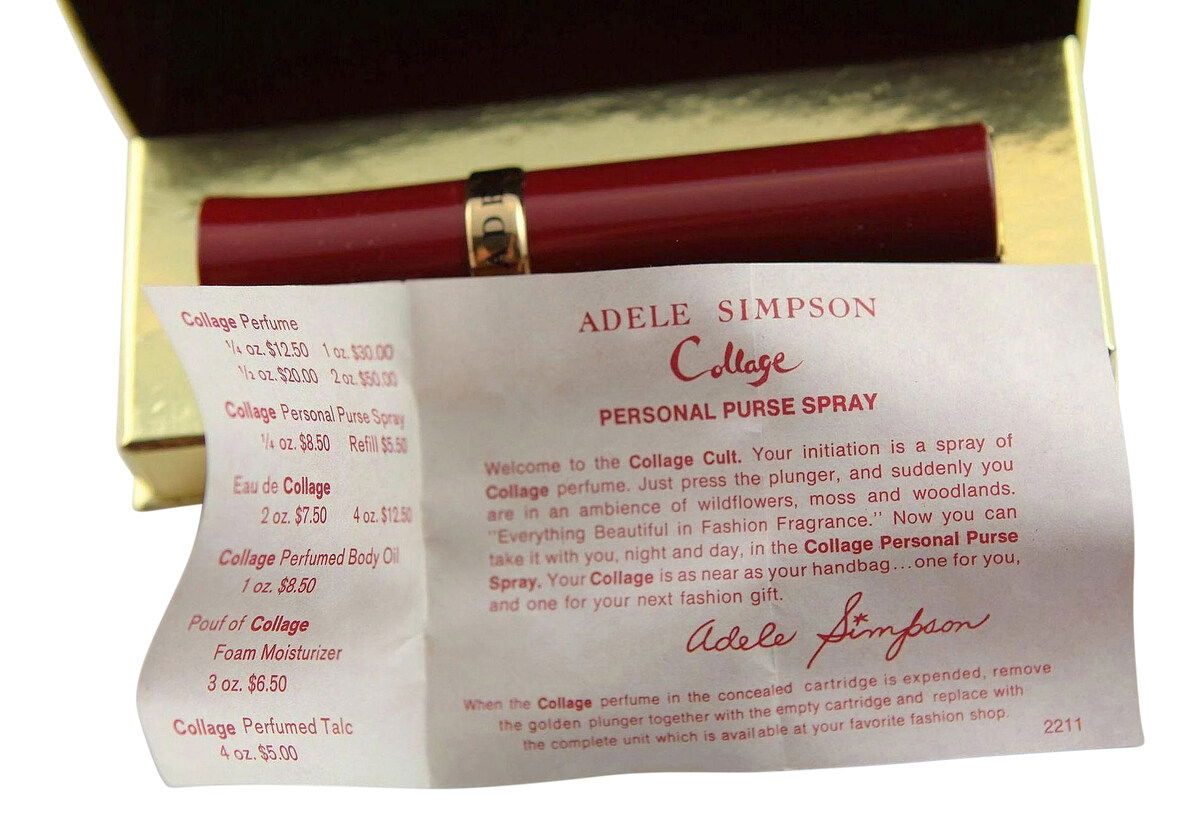 ADE
Collage Perfume
1/4 oz. $12.50 1 oz. $30.00
1/2 oz. $20.00 2 oz. $50.00
Collage Personal Purse Spray
1/4 oz. $8.50 Refill $5.50
Eau de Collage
2 oz. $7.50 4 oz. $12.50
Collage Perfumed Body Oil
1 oz. $8.50
Pouf of Collage
Foam Moisturizer
3 oz. $6.50
Collage Perfumed Talc
4 oz. $5.00
ADELE SIMPSON
Collage
PERSONAL PURSE SPRAY
Welcome to the Collage Cult. Your initiation is a spray of
Collage perfume. Just press the plunger, and suddenly you
are in an ambience of wildflowers, moss and woodlands.
"Everything Beautiful in Fashion Fragrance." Now you can
take it with you, night and day, in the Collage Personal Purse
Spray. Your Collage is as near as your handbag...one for you,
and one for your next fashion gift.
Adele Simpson
When the Collage perfume in the concealed cartridge is expended, remove
the golden plunger together with the empty cartridge and replace with
the complete unit which is available at your favorite fashion shop.
2211